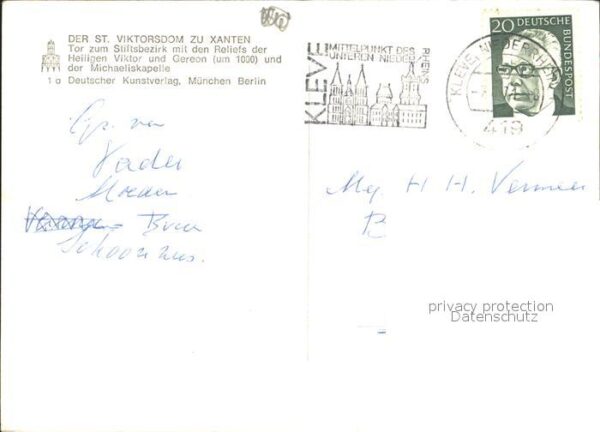 DER ST. VIKTORSDOM ZU XANTEN
Tor zum Stiftsbezirk mit den Reliefs der
Heiligen Viktor und Gereon (um 1000) und
der Michaeliskapelle
1 a Deutscher Kunstverlag, München Berlin
KLEVE
MITTELPUNKT DES
UNTEREN NIEDER
RHEINS
20 DEUTSCHE
BUNDESPOST
KLEVE, NIEDERRHEIN
419
van
Vader
Moeder
Broer
Schoonzus.
H H. Vermeer
B
privacy protection
Datenschutz